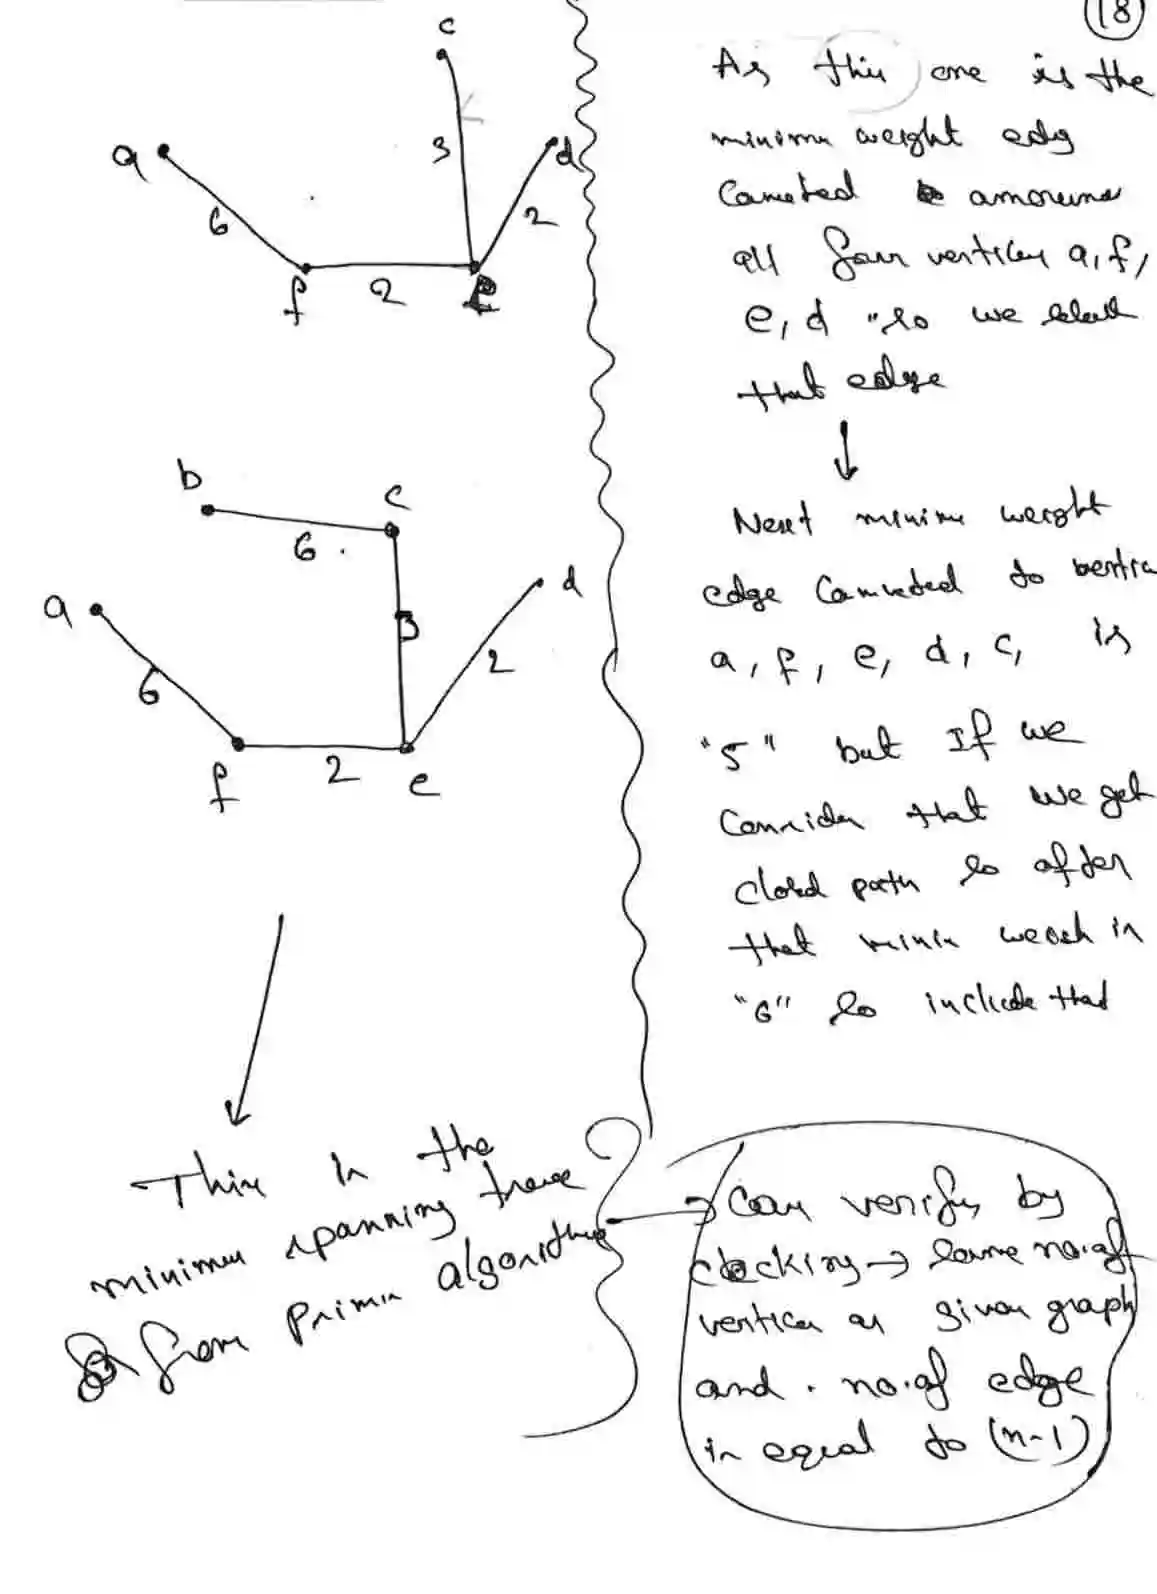 18
c
As this one is the
a
3
d
minimu weight edg
6
2
f
2
e
all four vertices a, f,
e, d "so we select
that edge
b
c
6
Next minimu weight
a
d
edge to
3
2
6
a, f, e, d, c, is
f
2
e
"5" but If we
Consider that we get
closd path so after
that in
"6" so include that
This is the
minimum spanning
from prims algorithm
can verify by
checking → same no. of
vertices as given graph
and . no. of edge
is equal to (n-1)